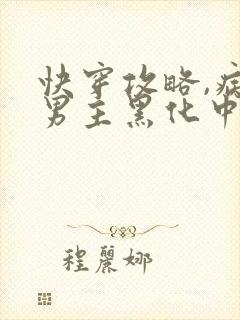 快穿攻略,病
男主黑化中
程麗娜